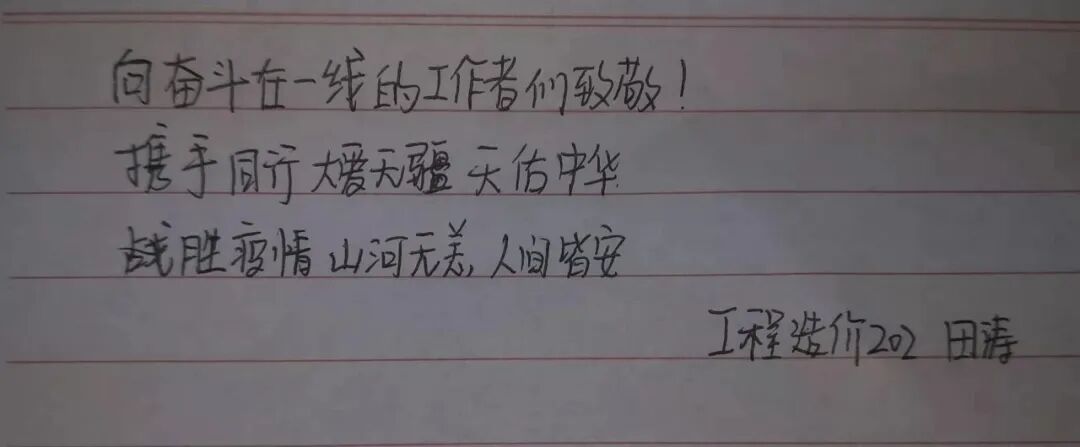 向奋斗在一线的工作者们致敬！
携手同行 大爱无疆 天佑中华
战胜疫情 山河无恙,人间皆安
工程造价202 田涛